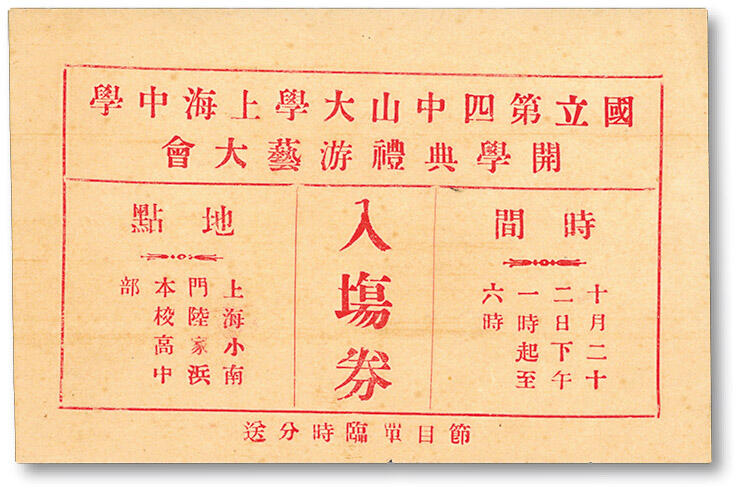 國立第四中山大學上海中學
開學典禮游藝大會
時間
十月二十
二日下午
一時起至
六時
入場券
地點
上海小南
門陸家浜
本校高中
部
節目單臨時分送